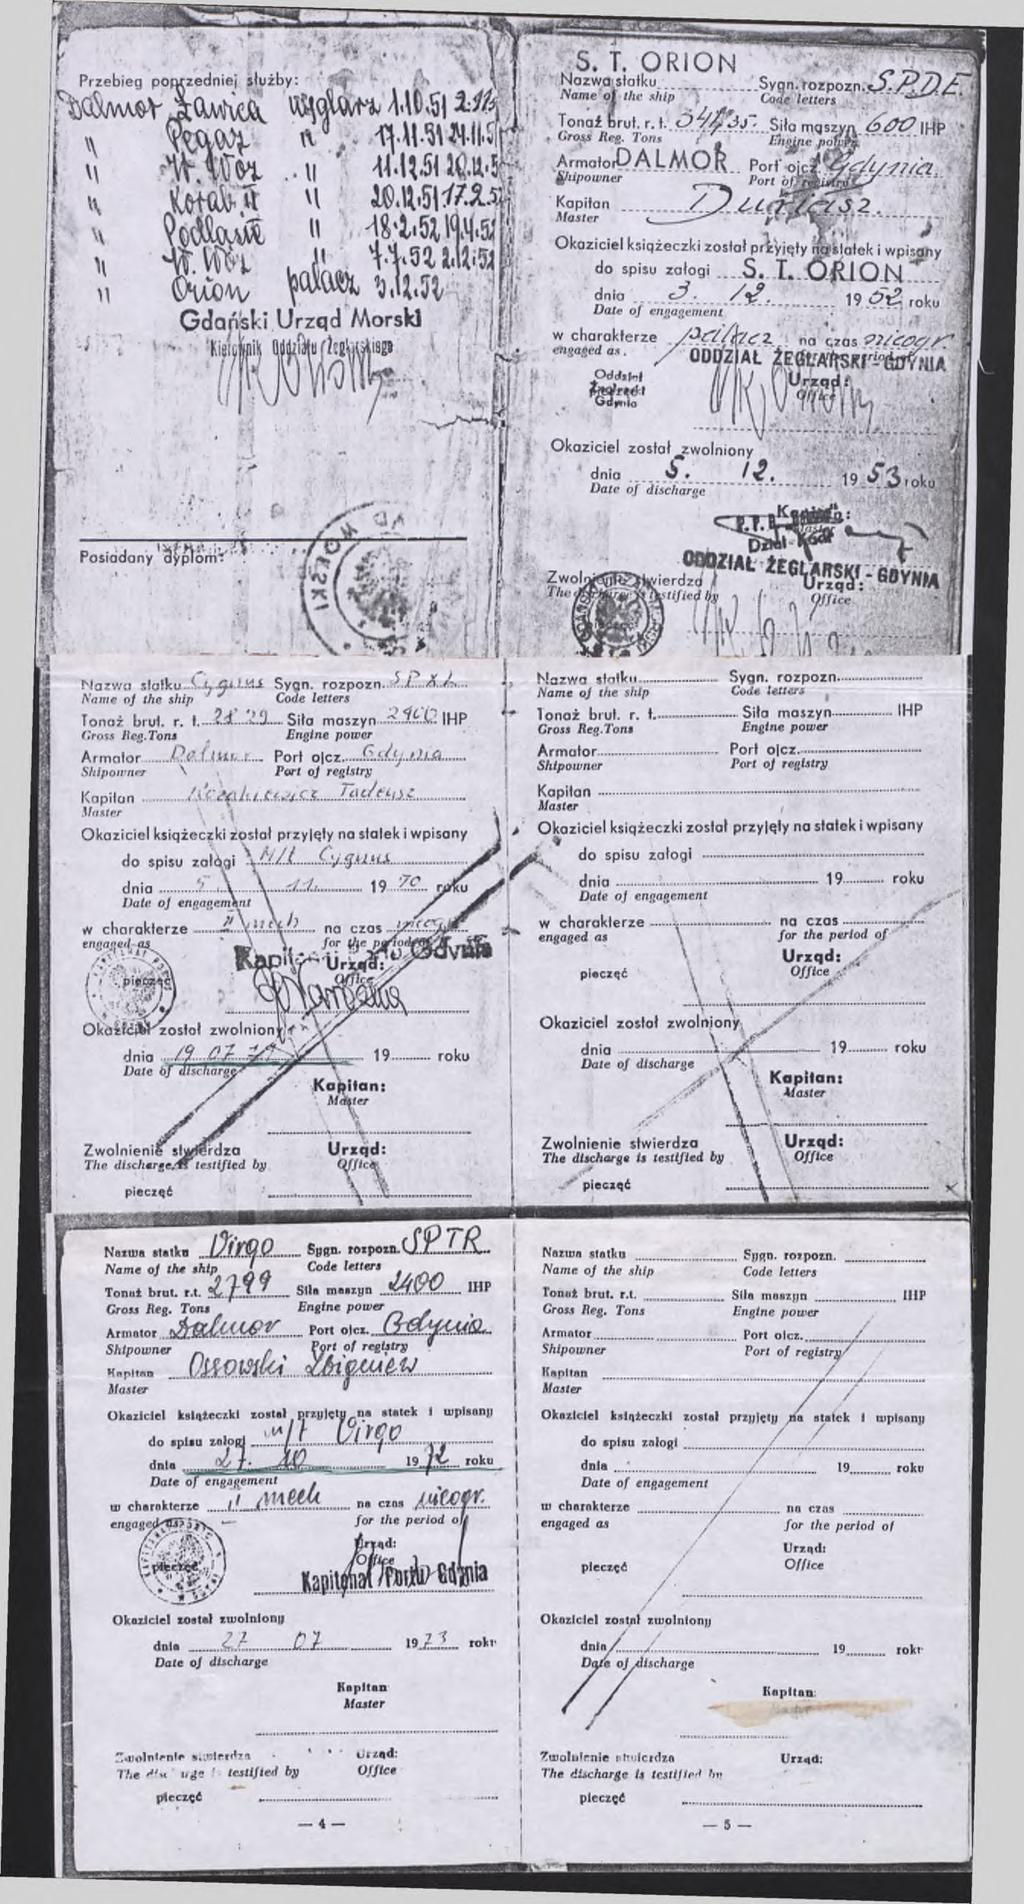 Przebieg poprzedniej służby:
Dalmor Ławica węglarz 1.10.51
" Pegaz " 17.11.51 24.11.5
" W. Woz " 11.12.51 20.12.5
" Korab II " 20.12.51 17.2.52
" Podlasie " 18.2.52 19.4.52
" W. Woz " 7.7.52 2.12.52
" Orion palacz 3.12.52
Gdański Urząd Morski
Kierownik Oddziału Żeglarskiego
Posiadany dyplom:
S. T. ORION
Nazwa statku Sygn. rozpozn. S.P.D.E.
Name of the ship Code letters
Tonaż brut. r. t. Siła maszyn 600 IHP
Gross Reg. Tons Engine power
Armator DALMOR Port ojcz. Gdynia
Shipowner Port of registry
Kapitan
Master
Okaziciel książeczki został przyjęty na statek i wpisany
do spisu załogi S. T. ORION
dnia 3. 12. 1952 roku
Date of engagement
w charakterze palacz na czas nieogr.
engaged as
ODDZIAŁ ŻEGLARSKI - GDYNIA
Oddział Żeglarski Gdynia
Urząd:
Office
Okaziciel został zwolniony
dnia 5. 12. 1953 roku
Date of discharge
Kapitan:
Master
ODDZIAŁ ŻEGLARSKI - GDYNIA
Zwolnienie stwierdza Urząd:
The discharge is testified by Office
Nazwa statku Cygnus Sygn. rozpozn.
Name of the ship Code letters
Tonaż brut. r. t. Siła maszyn 2400 IHP
Gross Reg.Tons Engine power
Armator Dalmor Port ojcz. Gdynia
Shipowner Port of registry
Kapitan Kozakiewicz Tadeusz
Master
Okaziciel książeczki został przyjęty na statek i wpisany
do spisu załogi M/t Cygnus
dnia 5 11. 1970 roku
Date of engagement
w charakterze II mech na czas nieogr
engaged as for the period of
Kapitanat Portu Gdynia
Urząd:
Office
pieczęć
Okaziciel został zwolniony
dnia 19 07 19 roku
Date of discharge
Kapitan:
Master
Zwolnienie stwierdza Urząd:
The discharge is testified by Office
pieczęć
Nazwa statku Sygn. rozpozn.
Name of the ship Code letters
Tonaż brut. r. t. Siła maszyn IHP
Gross Reg.Tons Engine power
Armator Port ojcz.
Shipowner Port of registry
Kapitan
Master
Okaziciel książeczki został przyjęty na statek i wpisany
do spisu załogi
dnia 19 roku
Date of engagement
w charakterze na czas
engaged as for the period of
Urząd:
pieczęć Office
Okaziciel został zwolniony
dnia 19 roku
Date of discharge
Kapitan:
Master
Zwolnienie stwierdza Urząd:
The discharge is testified by Office
pieczęć
Nazwa statku Virgo Sygn. rozpozn. SPTR
Name of the ship Code letters
Tonaż brut. r.t. 2799 Siła maszyn 2400 IHP
Gross Reg. Tons Engine power
Armator Dalmor Port ojcz. Gdynia
Shipowner Port of registry
Kapitan Ossowski Zbigniew
Master
Okaziciel książeczki został przyjęty na statek i wpisany
do spisu załogi m/t Virgo
dnia 27. 10 1972 roku
Date of engagement
w charakterze II mech na czas nieogr.
engaged as for the period of
Urząd:
Office
pieczęć
Kapitanat Portu Gdynia
Okaziciel został zwolniony
dnia 27 07 1973 roku
Date of discharge
Kapitan
Master
Zwolnienie stwierdza Urząd:
The discharge is testified by Office
pieczęć
— 4 —
Nazwa statku Sygn. rozpozn.
Name of the ship Code letters
Tonaż brut. r.t. Siła maszyn IHP
Gross Reg. Tons Engine power
Armator Port ojcz.
Shipowner Port of registry
Kapitan
Master
Okaziciel książeczki został przyjęty na statek i wpisany
do spisu załogi
dnia 19 roku
Date of engagement
w charakterze na czas
engaged as for the period of
Urząd:
pieczęć Office
Okaziciel został zwolniony
dnia 19 roku
Date of discharge
Kapitan:
Master
Zwolnienie stwierdza Urząd:
The discharge is testified by
pieczęć
— 5 —